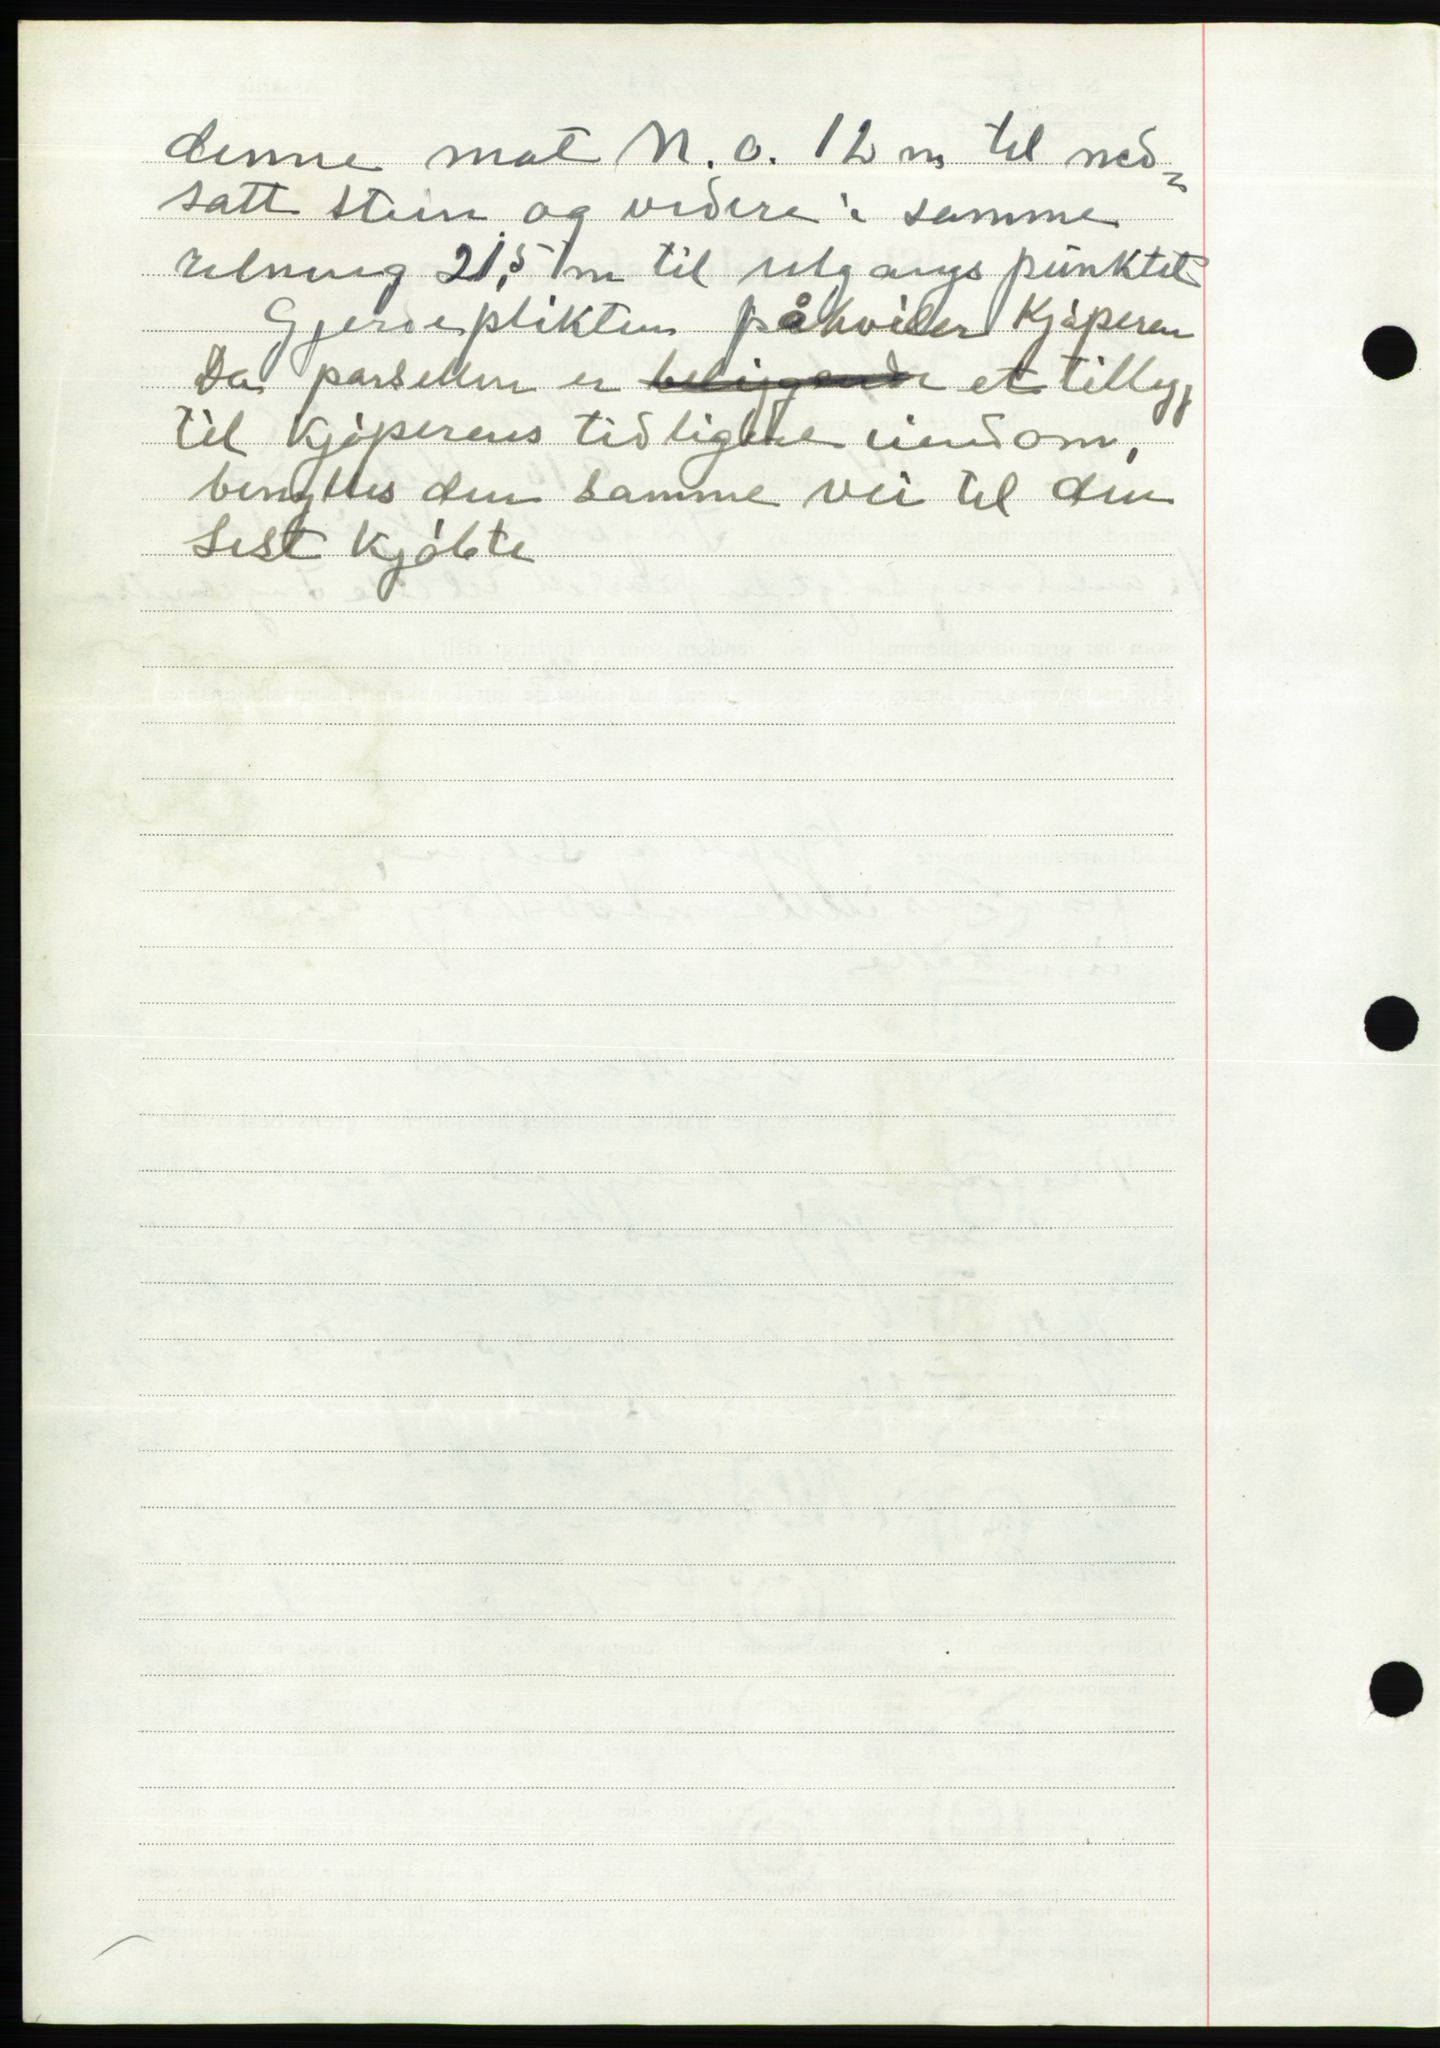 denne mot N. O. 12 m til ned=
satt stein og videre i samme
retning 21,5 m til utgangspunktet
Gjerdeplikten påhviler kjøperen
Da parsellen er beliggende et tillegg
til kjøperens tidligere eiendom,
benyttes den samme vei til den
sist kjøbte